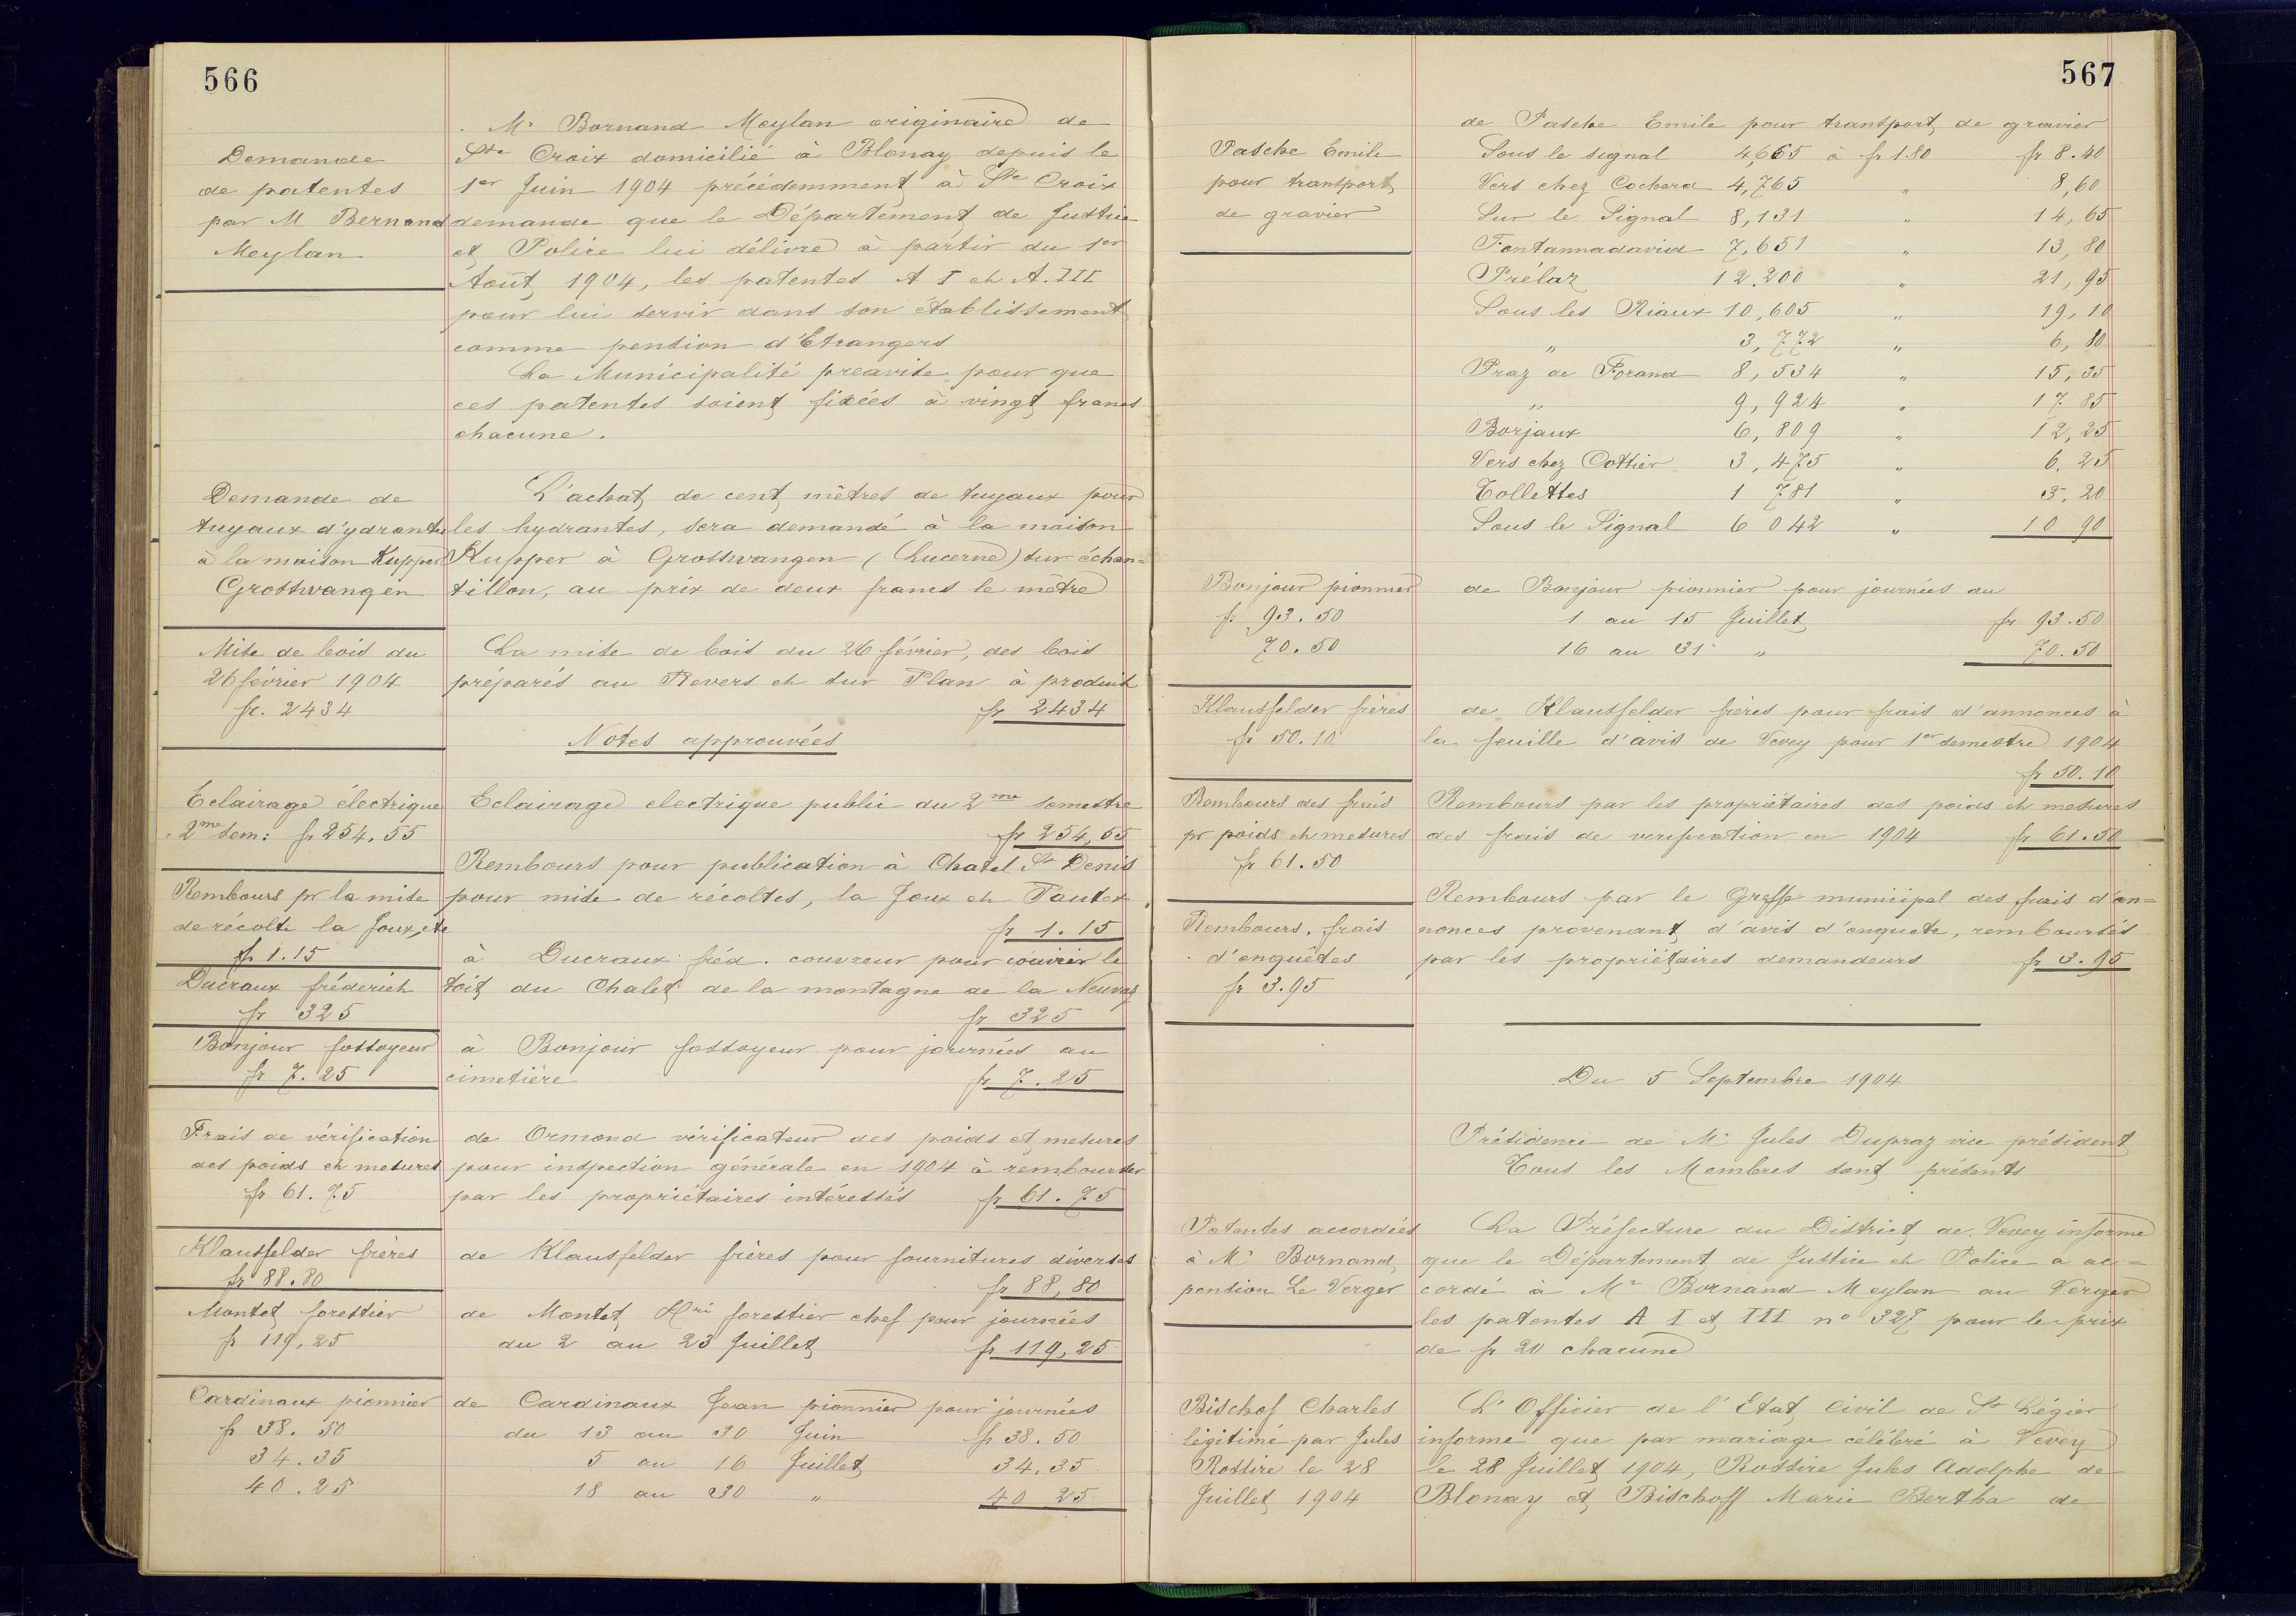 566
Demande
de patentes
par M Bernand
Meylan
Mr Bornand Meylan originaire de
Ste Croix domicilié à Blonay depuis le
1er Juin 1904 précédemment à Ste Croix
demande que le Département de Justice
et Police lui délivre à partir du 1er
Août 1904, les patentes A I et A. III
pour lui servir dans son établissement
comme pension d'Etrangers
La Municipalité preavise pour que
ces patentes soient fixées à vingt francs
chacune.
Demande de
tuyaux d'ydrantes
à la maison Kupper
Grosswangen
L'achat de cent mètres de tuyaux pour
les hydrantes, sera demandé à la maison
Kupper à Grosswangen (Lucerne) sur échan=
tillon, au prix de deux francs le mètre
Mise de bois du
26 février 1904
fr. 2434
La mise de bois du 26 février, des bois
préparés au Revers et sur Plan à produit
fr 2434
Notes approuvées
Eclairage électrique
2me sem: fr 254.55
Eclairage electrique public du 2me semestre
fr 254,55
Rembours pr la mise
de récolte la Joux, etc
fr 1.15
Rembours pour publication à Chatel St Denis
pour mise de récoltes, la Joux et Pautex
fr 1.15
Ducraux fréderich
fr 325
à Ducraux fréd. couvreur pour couvrir le
toit du Chalet de la montagne de la Neuvaz
fr 325
Bonjour fossoyeur
fr 7.25
à Bonjour fossoyeur pour journées au
cimetière fr 7.25
Frais de vérification
des poids et mesures
fr 61.75
de Ormond vérificateur des poids et mesures
pour inspection générale en 1904 à rembourser
par les propriétaires intéressés fr 61.75
Klausfelder frères
fr 88.80
de Klausfelder frères pour fournitures diverses
fr 88,80
Montet forestier
fr 119,25
de Montet Hri forestier chef pour journées
du 2 au 23 Juillet fr 119,25
Cardinaux pionnier
fr 38.50
34.35
40.25
de Cardinaux Jean pionnier pour journées
du 13 au 30 Juin fr 38.50
5 au 16 Juillet 34.35
18 au 30 " 40 25
567
Pasche Emile
pour transport
de gravier
de Pasche Emile pour transport de gravier
Sous le signal 4,665 à fr 1.80 fr 8.40
Vers chez Cochard 4,765 " 8,60
Sur le Signal 8,131 " 14,65
Fontannadavid 7,651 " 13,80
Prélaz 12.200 " 21,95
Sous les Riaux 10,605 " 19,10
" 3,772 " 6,80
Praz de Forand 8,534 " 15,35
" 9,924 " 17 85
Borjaux 6,809 " 12,25
Vers chez Cottier 3,475 " 6,25
Tollettes 1 781 " 3,20
Sous le Signal 6 042 " 10 90
Bonjour pionnier
fr 93.50
70.50
de Bonjour pionnier pour journées du
1 au 15 Juillet fr 93.50
16 au 31 " 70.50
Klausfelder frères
fr 50.10
de Klausfelder frères pour frais d'annonces à
la feuille d'avis de Vevey pour 1er semestre 1904
fr 50.10
Rembours des frais
pr poids et mesures
fr 61.50
Rembours par les propriétaires des poids et mesures
des frais de verification en 1904 fr 61.50
Rembours. frais
d'enquêtes
fr 3.95
Rembours par le Greffe municipal des frais d'an=
nonces provenant d'avis d'enquete, remboursés
par les propriétaires demandeurs fr 3.95
Du 5 Septembre 1904
Présidence de Mr Jules Dupraz vice président
Tous les Membres sont présents
Patentes accordées
à Mr Bornand,
pension Le Verger
La Préfecture du District de Vevey informe
que le Département de Justice et Police a ac=
cordé à Mr Bornand Meylan au Verger
les patentes A I et III no 327 pour le prix
de fr 20 chacune
Bischof Charles
légitimé par Jules
Rossire le 28
Juillet 1904
L'Officier de l'Etat Civil de St Légier
informe que par mariage célébré à Vevey
le 28 Juillet 1904, Rossire Jules Adolphe de
Blonay et Bischoff Marie Bertha de